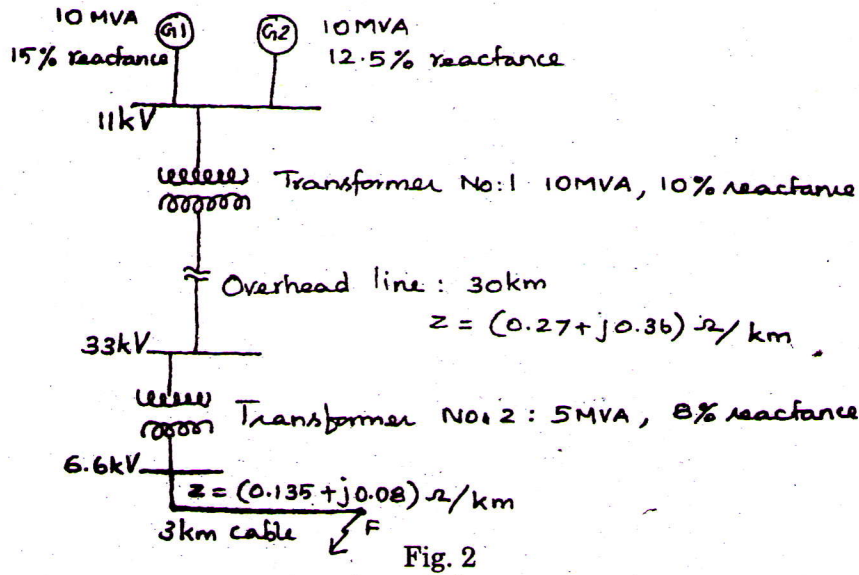 10 MVA G1 G2 10 MVA
15% reactance 12.5% reactance
11kV
Transformer No:1 10MVA, 10% reactance
Overhead line : 30km
Z = (0.27+j0.36) Ω/km
33kV
Transformer No. 2 : 5MVA, 8% reactance
6.6kV
Z = (0.135+j0.08) Ω/km
3km cable F
Fig. 2